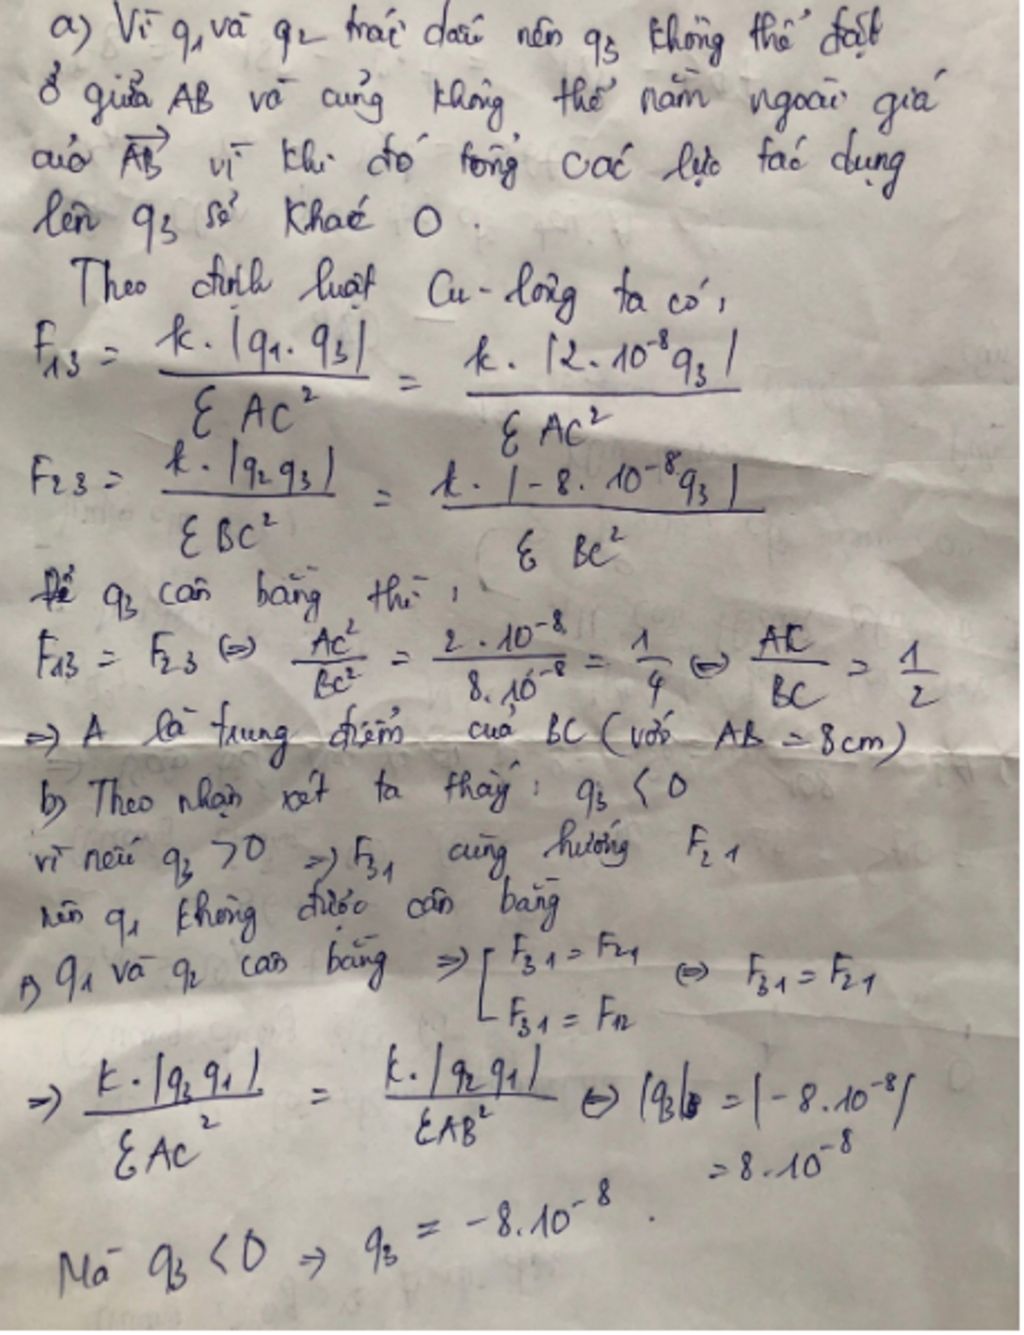 a) Vì q₁ và q₂ trái dấu nên q₃ không thể đặt
ở giữa AB và cũng không thể nằm ngoài giá
của \overrightarrow{AB} vì khi đó tổng các lực tác dụng
lên q₃ sẽ khác 0.
Theo định luật Cu-lông ta có:
F₁₃ = \frac{k.|q₁.q₃|}{ε AC²} = \frac{k.|2.10⁻⁸q₃|}{ε AC²}
F₂₃ = \frac{k.|q₂q₃|}{ε BC²} = \frac{k.|-8.10⁻⁸q₃|}{ε BC²}
Để q₃ cân bằng thì:
F₁₃ = F₂₃ ⇔ \frac{AC²}{BC²} = \frac{2.10⁻⁸}{8.10⁻⁸} = \frac{1}{4} ⇔ \frac{AC}{BC} = \frac{1}{2}
⇒ A là trung điểm của BC (với AB = 8cm)
b) Theo nhận xét ta thấy: q₃ < 0
vì nếu q₃ > 0 ⇒ F₃₁ cùng hướng F₂₁
nên q₁ không được cân bằng
q₁ và q₂ cân bằng ⇒ [ F₃₁ = F₂₁ ⇔ F₃₁ = F₂₁
F₃₁ = F₁₂
⇒ \frac{k.|q₃q₁|}{ε AC²} = \frac{k.|q₂q₁|}{εAB²} ⇔ |q₃| = |-8.10⁻⁸|
= 8.10⁻⁸
Mà q₃ < 0 ⇒ q₃ = -8.10⁻⁸.